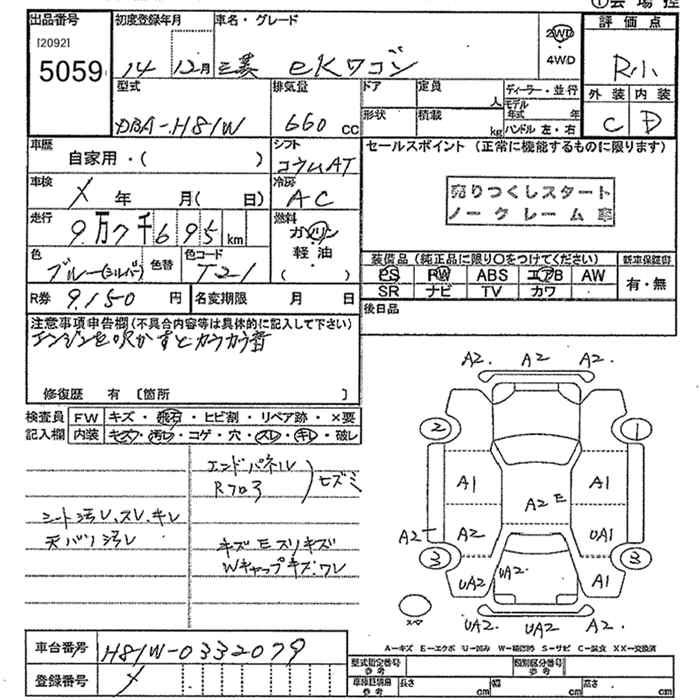 ①会場控
出品番号
[2092]
5059
初度登録年月
14
12月
車名・グレード
三菱
eKワゴン
2WD
4WD
評価点
R小
外装
内装
C
D
型式
DBA-H81W
排気量
660 cc
ドア
定員
人
形状
積載
kg
ディーラー・並行
モデル年式
年
ハンドル 左・右
車歴
自家用・( )
シフト
コラムAT
車検
メ 年 月( 日)
冷房
AC
走行
9万7千695 km
燃料
ガソリン
軽油
( )
色
ブルー(シルバー)
色替
色コード
T21
R券
9,150 円
名変期限 月 日
セールスポイント (正常に機能するものに限ります)
売りつくしスタート
ノークレーム車
装備品 (純正品に限り○をつけてください)
新車保証書
PS PW ABS エアB AW
SR ナビ TV カワ
有・無
後日品
注意事項申告欄(不具合内容等は具体的に記入して下さい)
エンジンを吹かすとカラカラ音
修復歴 有 〔箇所 〕
検査員
記入欄
FW
キズ・飛石・ヒビ割・リペア跡・×要
内装
キズ・汚レ・コゲ・穴・スレ・キレ・破レ
エンドパネル
Rフロア
ヒズミ
シート汚レ、スレ、キレ
天バリ汚レ
キズ Eスリキズ
Wキャップキズ、ワレ
A2. A2 A2.
2
1
A1
A1
A2 E
A2
UA1
A2
3
3
UA2
UA2
A1
スペ
UA2 UA2 A2.
A-キズ E-エクボ U-凹み W-補修跡 S-サビ C-腐食 XX-交換済
車台番号
H81W-0332079
登録番号
メ
型式指定番号
参考
類別区分番号
参考
車検証記載
参考
長さ cm
幅 cm
高さ cm